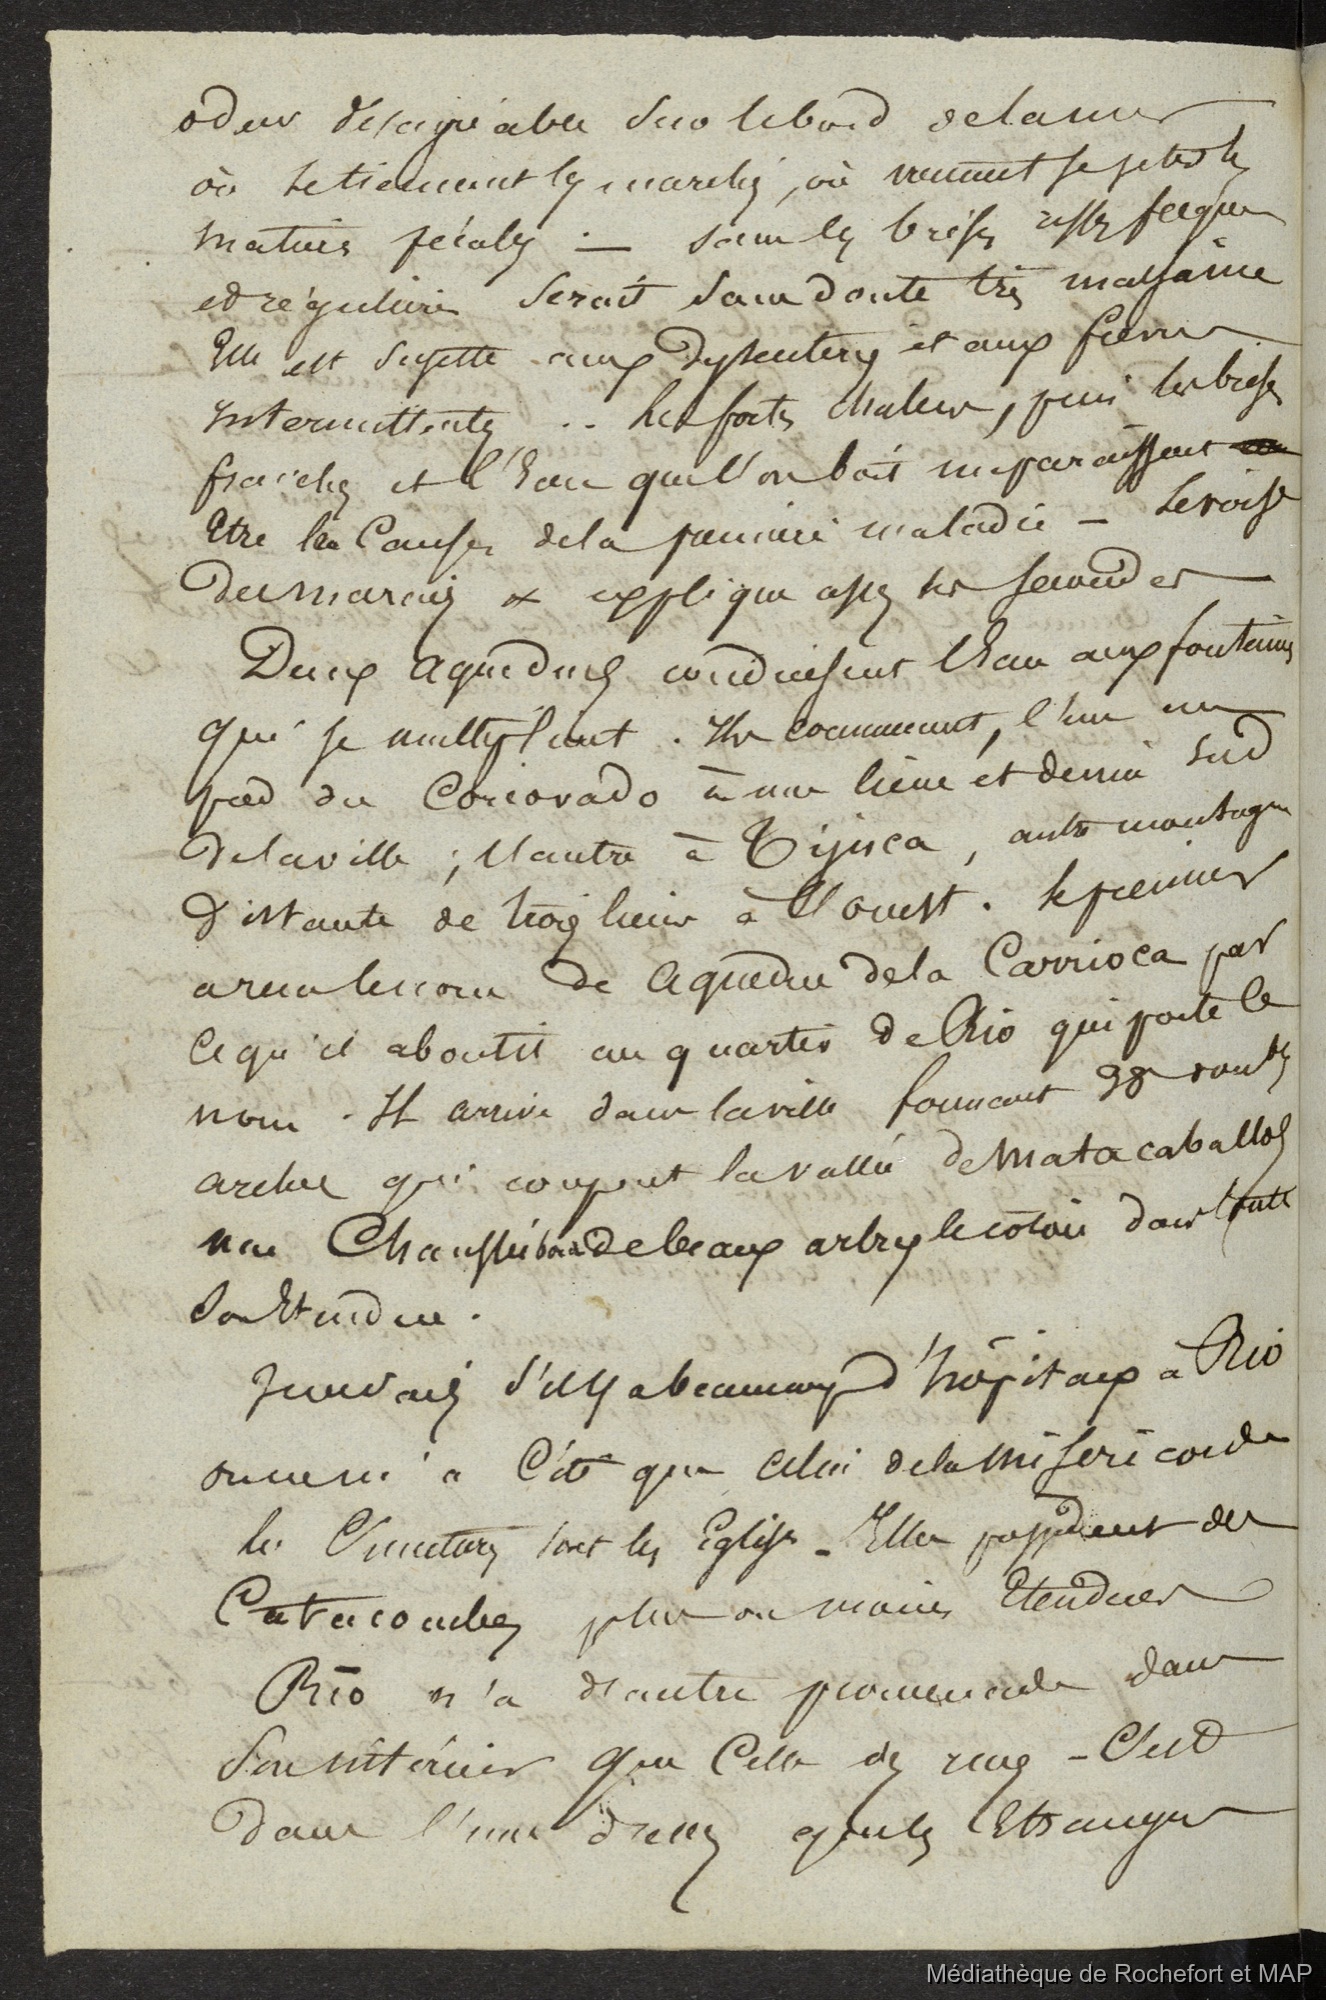 odeur désagréable sur le bord de la mer
où se tiennent les marchés, où viennent se jeter les
matières fécales — sans les brises assez fréquen
et régulières serait sans doute très malsaine
Elle est sujette aux dyssenteries et aux fievres
intermittentes .. les fortes chaleurs, puis les brises
fraiches et l'Eau que l'on boit me paraissent
Etre les Causes de la premiere maladie — le voisi
des marais & explique assez les secondes
Deux aqueducs conduisent l'Eau aux fontaines
qui se multiplient. Ils commencent, l'un au
pied du Corcovado à une lieue et demie sud
de la ville ; l'autre à Tijuca, autre montagne
distante de trois lieues à l'ouest. le premier
a reçu le nom de aqueduc de la Carrioca par
ce qu'il aboutit au quartier de Rio qui porte ce
nom. Il arrive dans la ville formant 38 doubles
arches qui coupent la vallée de Mata caballos
une Chaussée bordée de beaux arbres le cotoie dans toute
son Etendue.
Je ne sais s'il y a beaucoup d'hôpitaux à Rio
on ne m'a cité que celui de la Miséricorde
les Cimetieres sont les Eglises - Elles possèdent des
Catacombes plus ou moins Etendues
Rio n'a d'autre promenade dans
son intérieur que Celle des rues - C'est
dans l'une d'elles que les Etrangers
Médiathèque de Rochefort et MAP